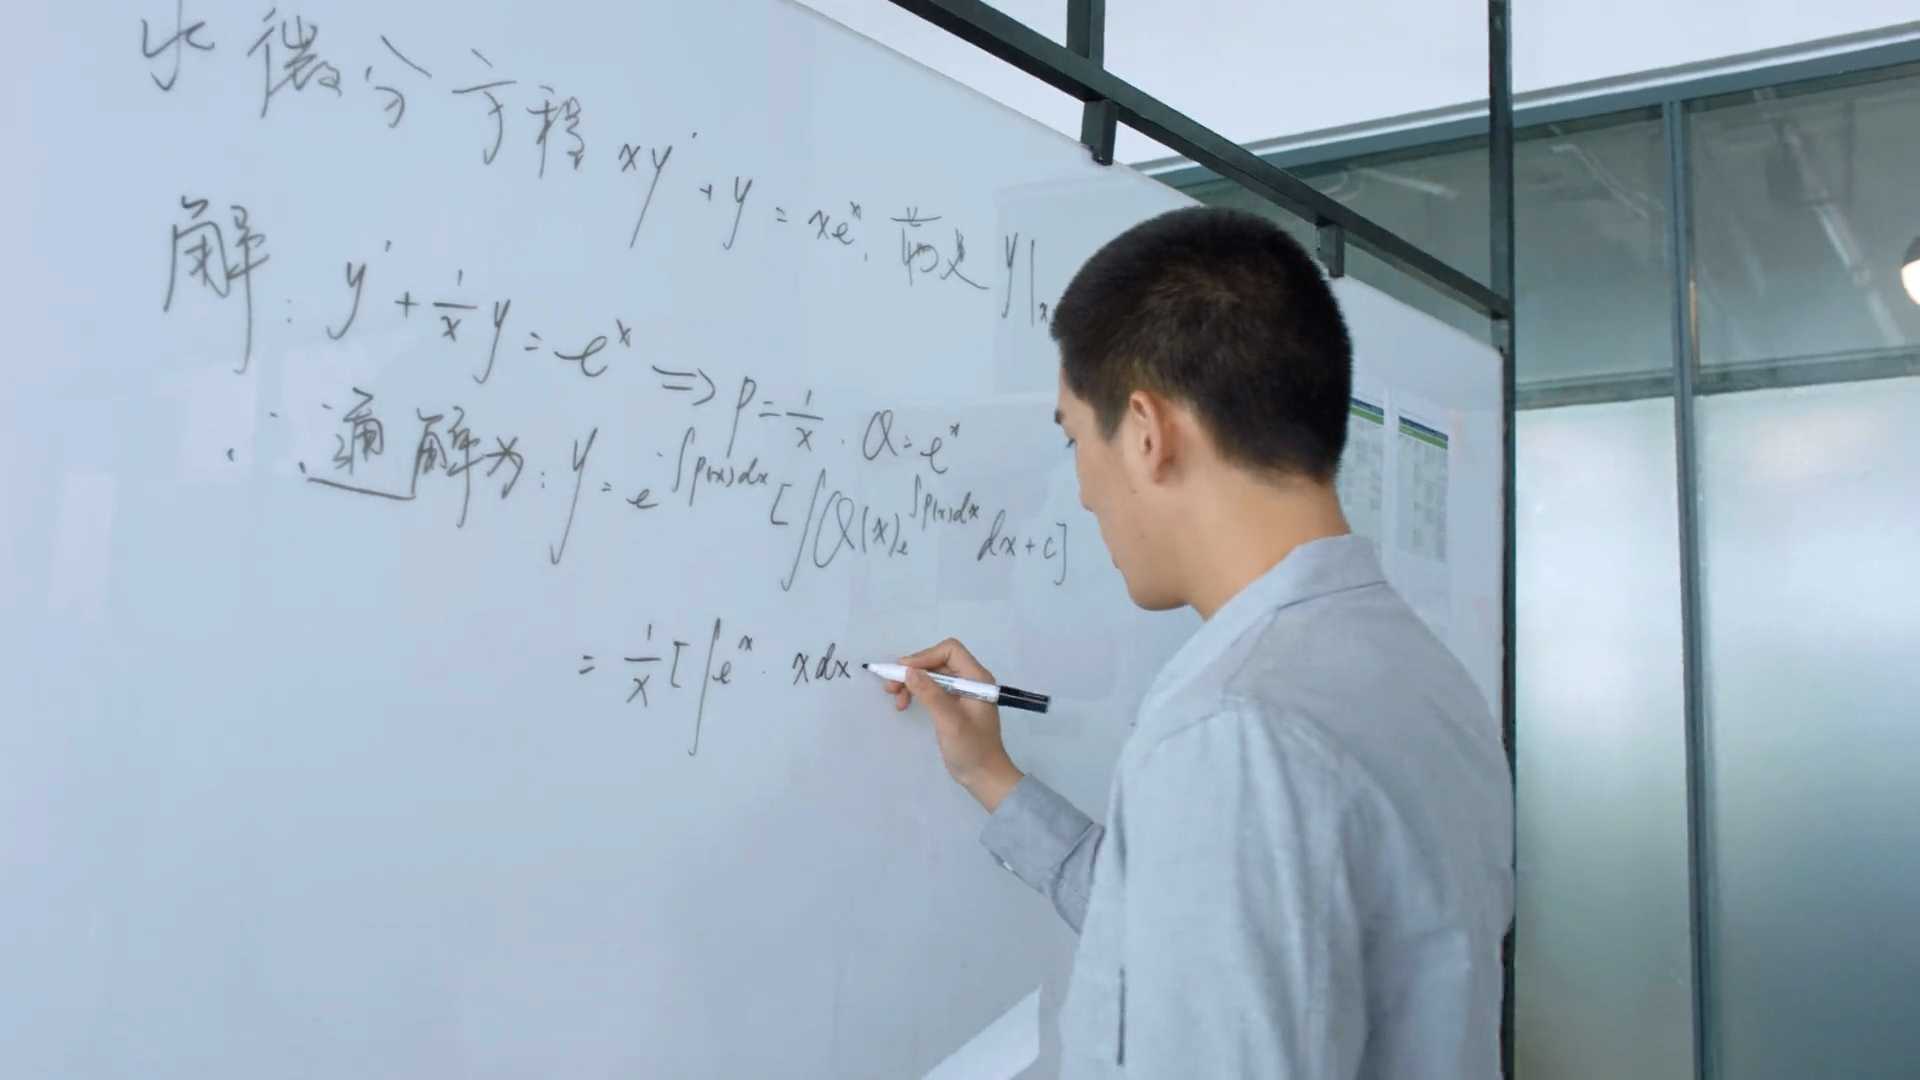 求微分方程 xy' + y = xe^x, 满足 y|x
解: y' + 1/x y = e^x ⇒ P = 1/x . Q = e^x
∴ 通解为: y = e^{-∫P(x)dx} [∫Q(x)e^{∫P(x)dx} dx + c]
= 1/x [∫e^x · xdx